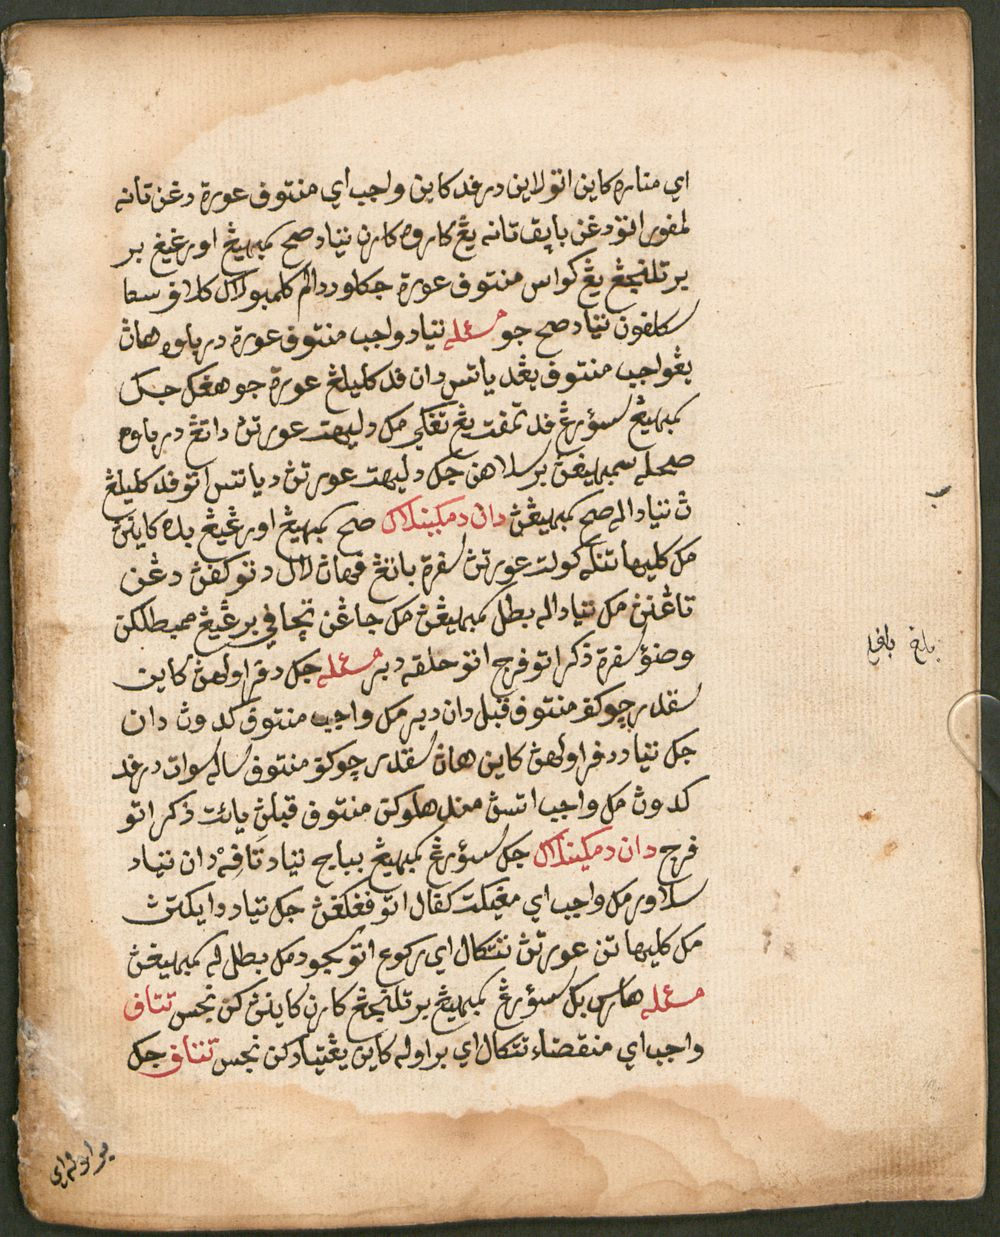 اي مناره كاين اتو لاين درفد كاين واجب اي منتوف عورة دغن تانه
لمفور اتو دغن بايق تانه يڠ كاروه كارن تياد صح سمبهيڠ اورڠيڠ بر
برتلنجڠ يڠ كواس منتوف عورة جكلو ددالم كلمبو سكالي كلاڤ سعا
سكلفون تياد صح جو مسئله تياد واجب منتوف عورة در باوه هان
يڠواجب منتوف يڠد ياتس دان فد كليلڠ عورة جو هڠك جك
سمبهيڠ سؤرڠ فد تمفت يڠ تڠكي مك دليهت عورتڽ داتڠ در باوه
صحله سمبهيڠڽ برسلاهن جك دليهت عورتڽ دياتس اتو فد كليلڠ
ڽ تياداله صح سمبهيڠڽ دان دمكينلاڬي صح سمبهيڠ اورڠيڠ بله كاينڽ
مك كليهاتنله كولت عورتڽ سفرة باتڠ ڤهاڽ لال دتوكفڽ دڠن
تاڠنڽ مك تياداله بطل سمبهيڠڽ مك جاڠن تجافي برڠيڠ ممبطلكن
وضوء سفرة ذكر اتو فرج اتو حلقه دبر مسئله جك دفراولهڽ كاين
سقدر چوكف منتوف قبل دان دبر مك واجب منتوف كدوڽ دان
جك تياد دفراولهڽ كاين هان سقدر چوكف منتوف ساله سوات درفد
كدوڽ مك واجب اتسڽ مندهلوكن منتوف قبلڽ يائت ذكر اتو
فرج دان دمكينلاڬي جك سؤرڠ سمبهيڠ بباج تياد تافيه دان تياد
سلاور مك واجب اي مڠيكت كفال اتو فڠڬڠڽ جك تياد دايكتڽ
مك كليهاتن عورتڽ تتكال اي ركوع اتو سجود مك بطل له سمبهيڠڽ
مسئله هارس بڬ سؤرڠ سمبهيڠ برتلنجڠ كارن كاينڽ كن نجس تتاف
واجب اي منقضاء تتكال اي براوله كاين يڠتياد كن نجس تتاف جك
براوله اي
باتڠ باڤيله